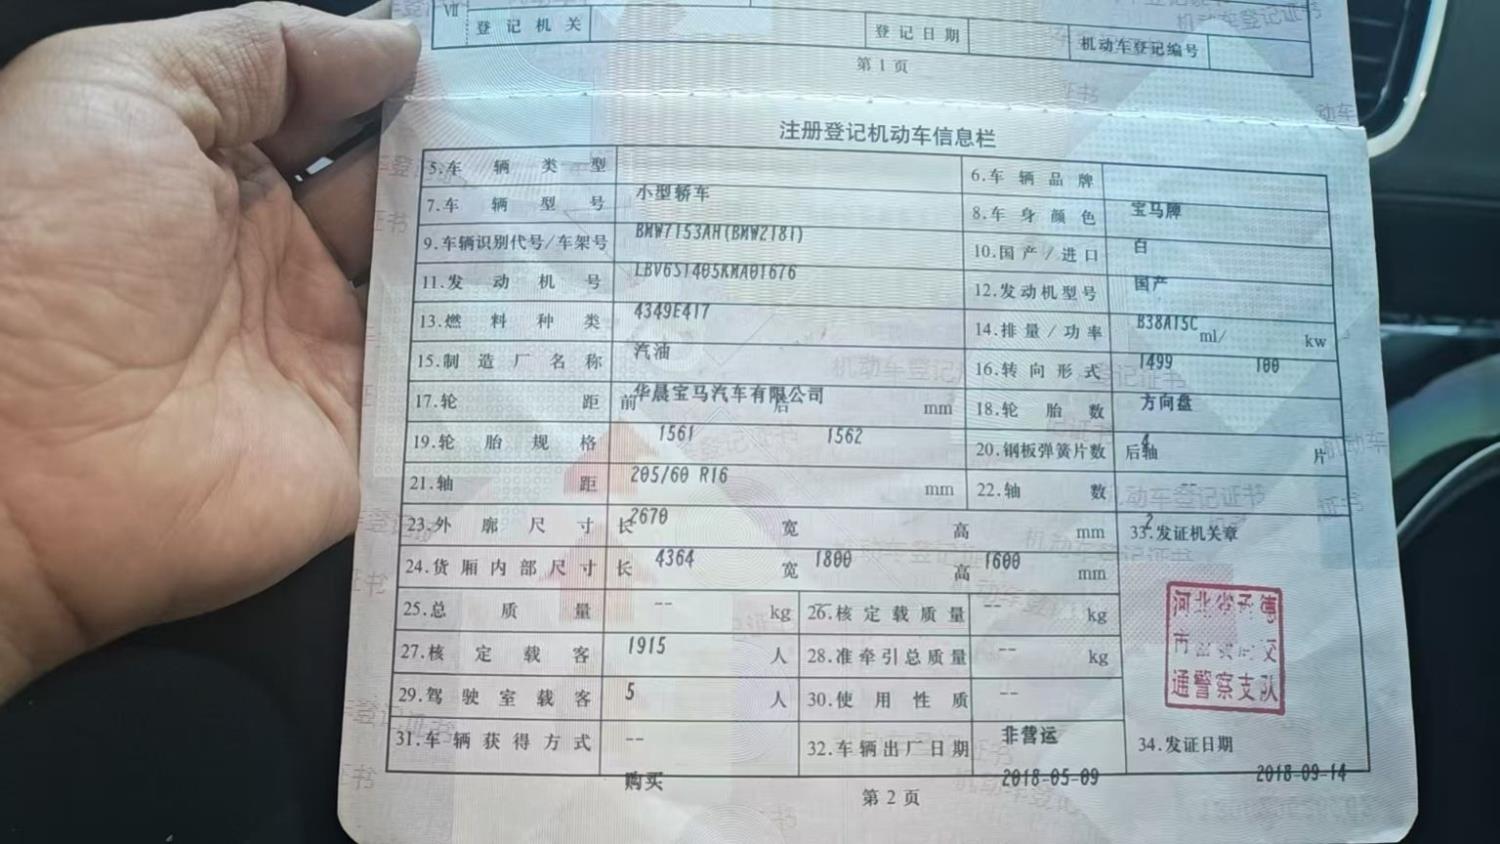 VII 登记机关 登记日期 机动车登记编号
第1页
注册登记机动车信息栏
5.车辆类型 小型轿车 6.车辆品牌 宝马牌
7.车辆型号 BMW7153AH(BMW218I) 8.车身颜色 白
9.车辆识别代号/车架号 LBV6S1405KMA01676 10.国产/进口 国产
11.发动机号 4349E417 12.发动机型号 B38A15C
13.燃料种类 汽油 14.排量/功率 1499 ml/ 100 kw
15.制造厂名称 华晨宝马汽车有限公司 16.转向形式 方向盘
17.轮距 前 1561 后 1562 mm 18.轮胎数 4
19.轮胎规格 205/60 R16 20.钢板弹簧片数 后轴 -- 片
21.轴距 2670 mm 22.轴数 2
23.外廓尺寸 长 4364 宽 1800 高 1600 mm 33.发证机关章
24.货厢内部尺寸 长 -- 宽 -- 高 -- mm
25.总质量 1915 kg 26.核定载质量 -- kg
27.核定载客 5 人 28.准牵引总质量 -- kg
29.驾驶室载客 -- 人 30.使用性质 非营运
31.车辆获得方式 购买 32.车辆出厂日期 2018-05-09 34.发证日期 2018-09-14
河北省承德
市
通警察支队
第2页